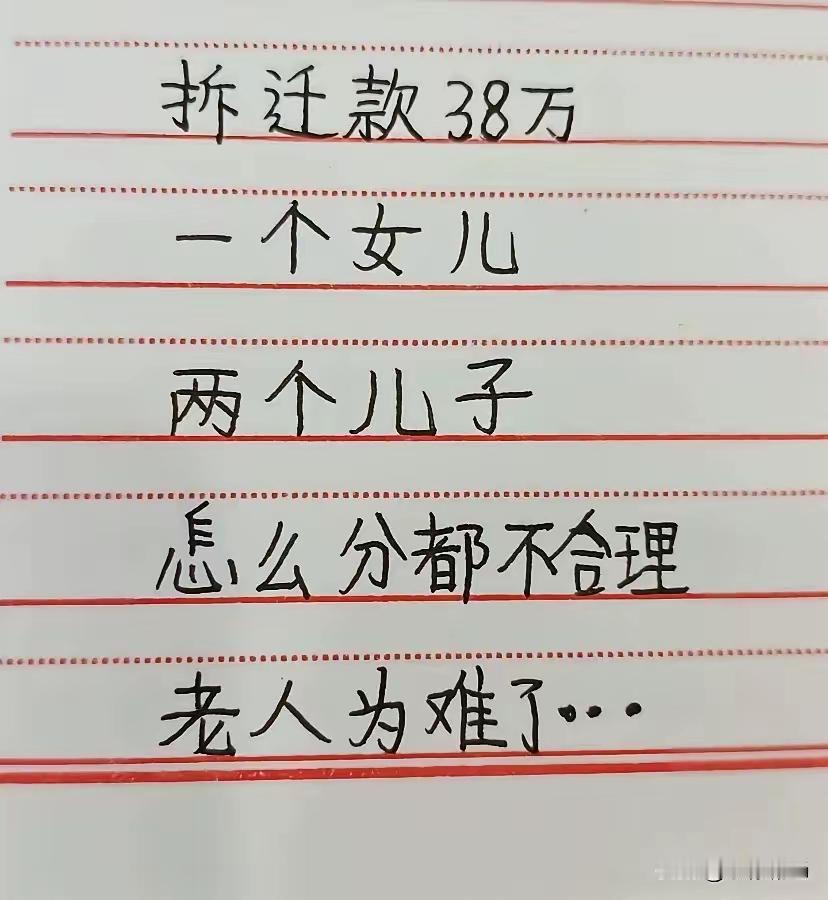 拆迁款38万
一个女儿
两个儿子
怎么分都不合理
老人为难了…